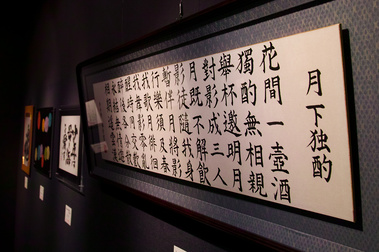 月下独酌
花間一壺酒
獨酌無相親
舉杯邀明月
對影成三人
月既不解飲
影徒隨我身
暫伴月將影
行樂須及春
我歌月徘徊
我舞影零亂
醒時同交歡
醉後各分散
永結無情遊
相期